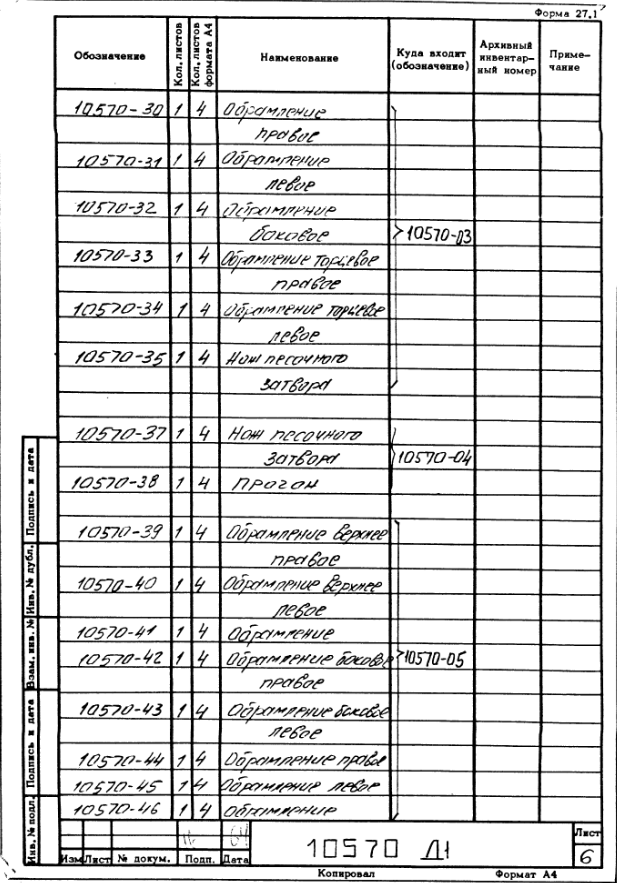 Форма 27.1
Обозначение Кол. листов Кол. листов формата А4 Наименование Куда входит (обозначение) Архивный инвентарный номер Примечание
10570-30 1 4 Обрамление
правое
10570-31 1 4 Обрамление
левое
10570-32 1 4 Обрамление
боковое 10570-03
10570-33 1 4 Обрамление торцевое
правое
10570-34 1 4 Обрамление торцевое
левое
10570-35 1 4 Нож песочного
затвора
10570-37 1 4 Нож песочного
затвора 10570-04
10570-38 1 4 Прогон
10570-39 1 4 Обрамление верхнее
правое
10570-40 1 4 Обрамление верхнее
левое
10570-41 1 4 Обрамление
10570-42 1 4 Обрамление боковое 10570-05
правое
10570-43 1 4 Обрамление боковое
левое
10570-44 1 4 Обрамление правое
10570-45 1 4 Обрамление левое
10570-46 1 4 Обрамление
Инв. № подл. Подпись и дата Взам. инв. № Инв. № дубл. Подпись и дата
Изм Лист № докум. Подп. Дата
10570 Д1
Лист
6
Копировал Формат А4